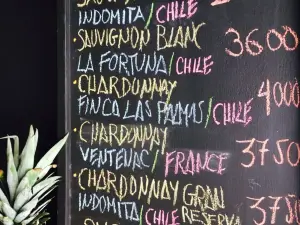 INDOMITA/CHILE
·SAUVIGNON BLANC 3600
LA FORTUNA/CHILE
·CHARDONNAY 4000
FINCA LAS PALMAS/CHILE
·CHARDONNAY 3750
VENTENAC/FRANCE
·CHARDONNAY GRAN 3750
INDOMITA/CHILE RESERVA